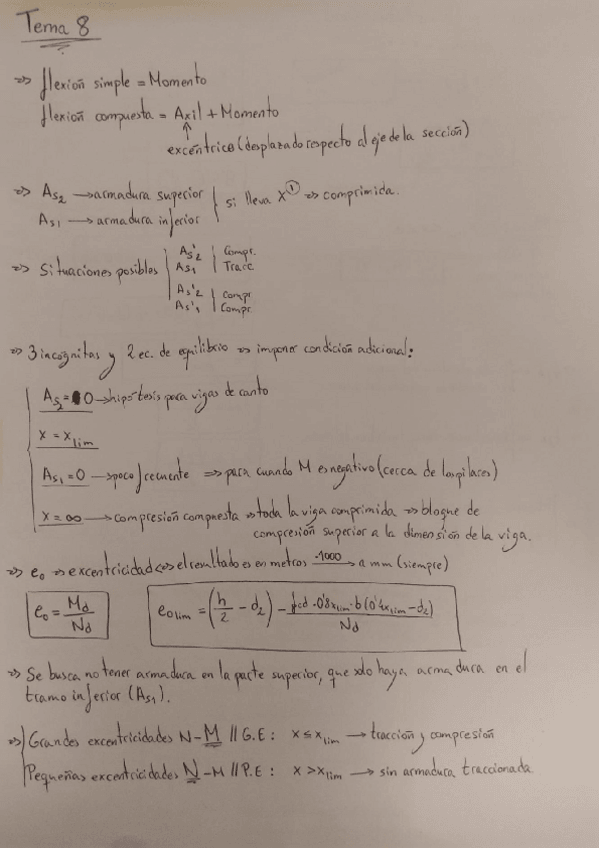 Tema 8
=> flexión simple = Momento
flexión compuesta = Axil + Momento
↑
excéntrico (desplazado respecto al eje de la sección)
=> As2 → armadura superior
As1 → armadura inferior
si lleva X ① => comprimida.
=> Situaciones posibles
As'2 | Compr.
As1 | Tracc.
As'2 | Compr
As'1 | Compr
=> 3 incógnitas y 2 ec. de equilibrio => imponer condición adicional:
As2 = 0 → hipótesis para vigas de canto
x = xlim
As1 = 0 → poco frecuente => para cuando M es negativo (cerca de los pilares)
x = ∞ → compresión compuesta => toda la viga comprimida => bloque de
compresión superior a la dimensión de la viga.
=> e₀ => excentricidad <=> el resultado es en metros ·1000 → a mm (siempre)
e₀ = Md / Nd
e₀lim = (h/2 - d2) - fcd · 0'8xlim · b (0'4xlim - d2) / Nd
=> Se busca no tener armadura en la parte superior, que solo haya armadura en el
tramo inferior (As1).
=> Grandes excentricidades N-M // G.E: x ≤ xlim → tracción y compresión
Pequeñas excentricidades N-M // P.E: x > xlim → sin armadura traccionada